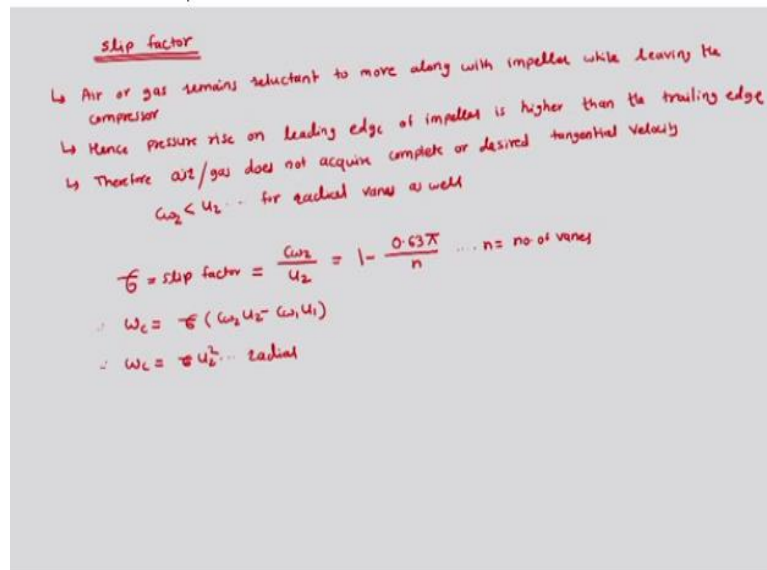 slip factor
↳ Air or gas remains reluctant to move along with impeller while leaving the
compressor
↳ Hence pressure rise on leading edge of impeller is higher than the trailing edge
↳ Therefore air/gas does not acquire complete or desired tangential velocity
Cω₂ < U₂ ... for radial vanes as well
σ = slip factor = Cω₂/U₂ = 1 - 0.63π/n .... n = no. of vanes
∴ Wc = σ (Cω₂U₂ - Cω₁U₁)
∴ Wc = σ U₂² ... radial